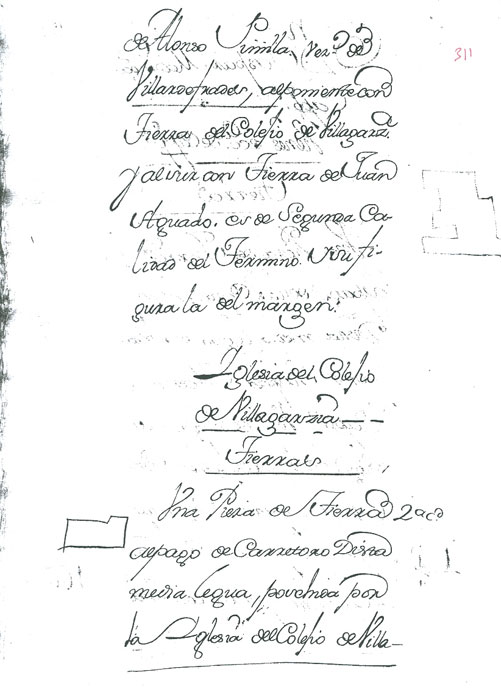 de Alonso Pinilla, vez.º de
Villardefrades, alponiente con
Tierra del Colesio de Villagarz.ª
y al sur con Tierra de Juan
Aguado. es de Segunda Ca-
lidad del Termino. Y su fi-
gura la del margen.
311
Yglesia del Colesio
de Villagarzia
Tierras
Vna Pieza de Tierra 2ª cd
al pago de Carretoro Dista
media legua, posehida por
la Yglesia del Colesio de Villa-